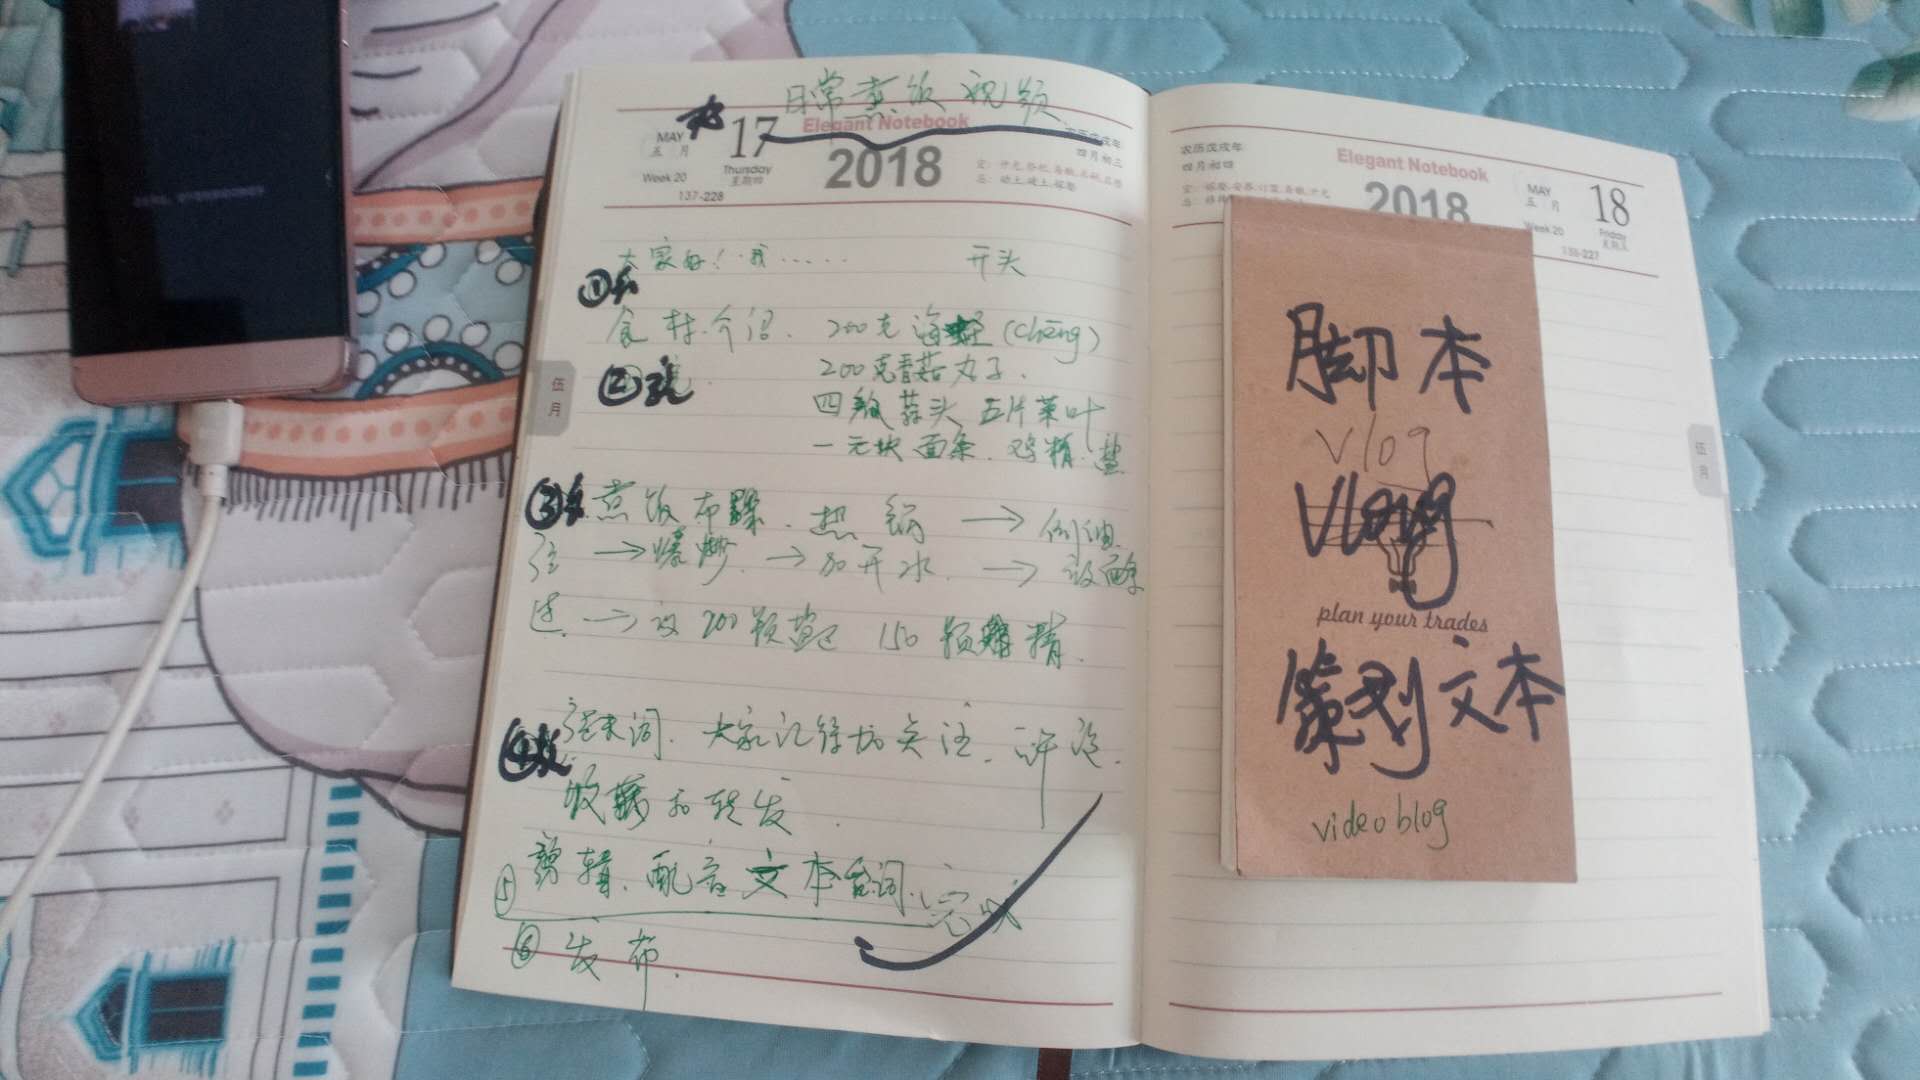 日常煮饭视频
MAY
五 月
17
Thursday
星期四
Week 20
137-228
Elegant Notebook
2018
四月初三
大家好！我…… 开头
①
食材介绍. 200克海蛏 (Chēng)
②
200克香菇丸子.
四瓣蒜头 五片菜叶
一元块面条. 鸡精. 盐
③
煮饭布骤. 热锅 → 倒油
→ 爆炒. → 加开水. →
→ 放200颗盐 150颗鸡精.
④
结末词. 大家记得加关注. 评论.
收藏和转发.
⑤ 剪辑. 配音文本台词. 完成
⑥ 发布.
伍
月
农历戊戌年
四月初四
Elegant Notebook
2018
MAY
五 月
18
Friday
星期五
Week 20
138-227
伍
月
脚本
Vlog
Vlog
plan your trades
策划文本
video blog